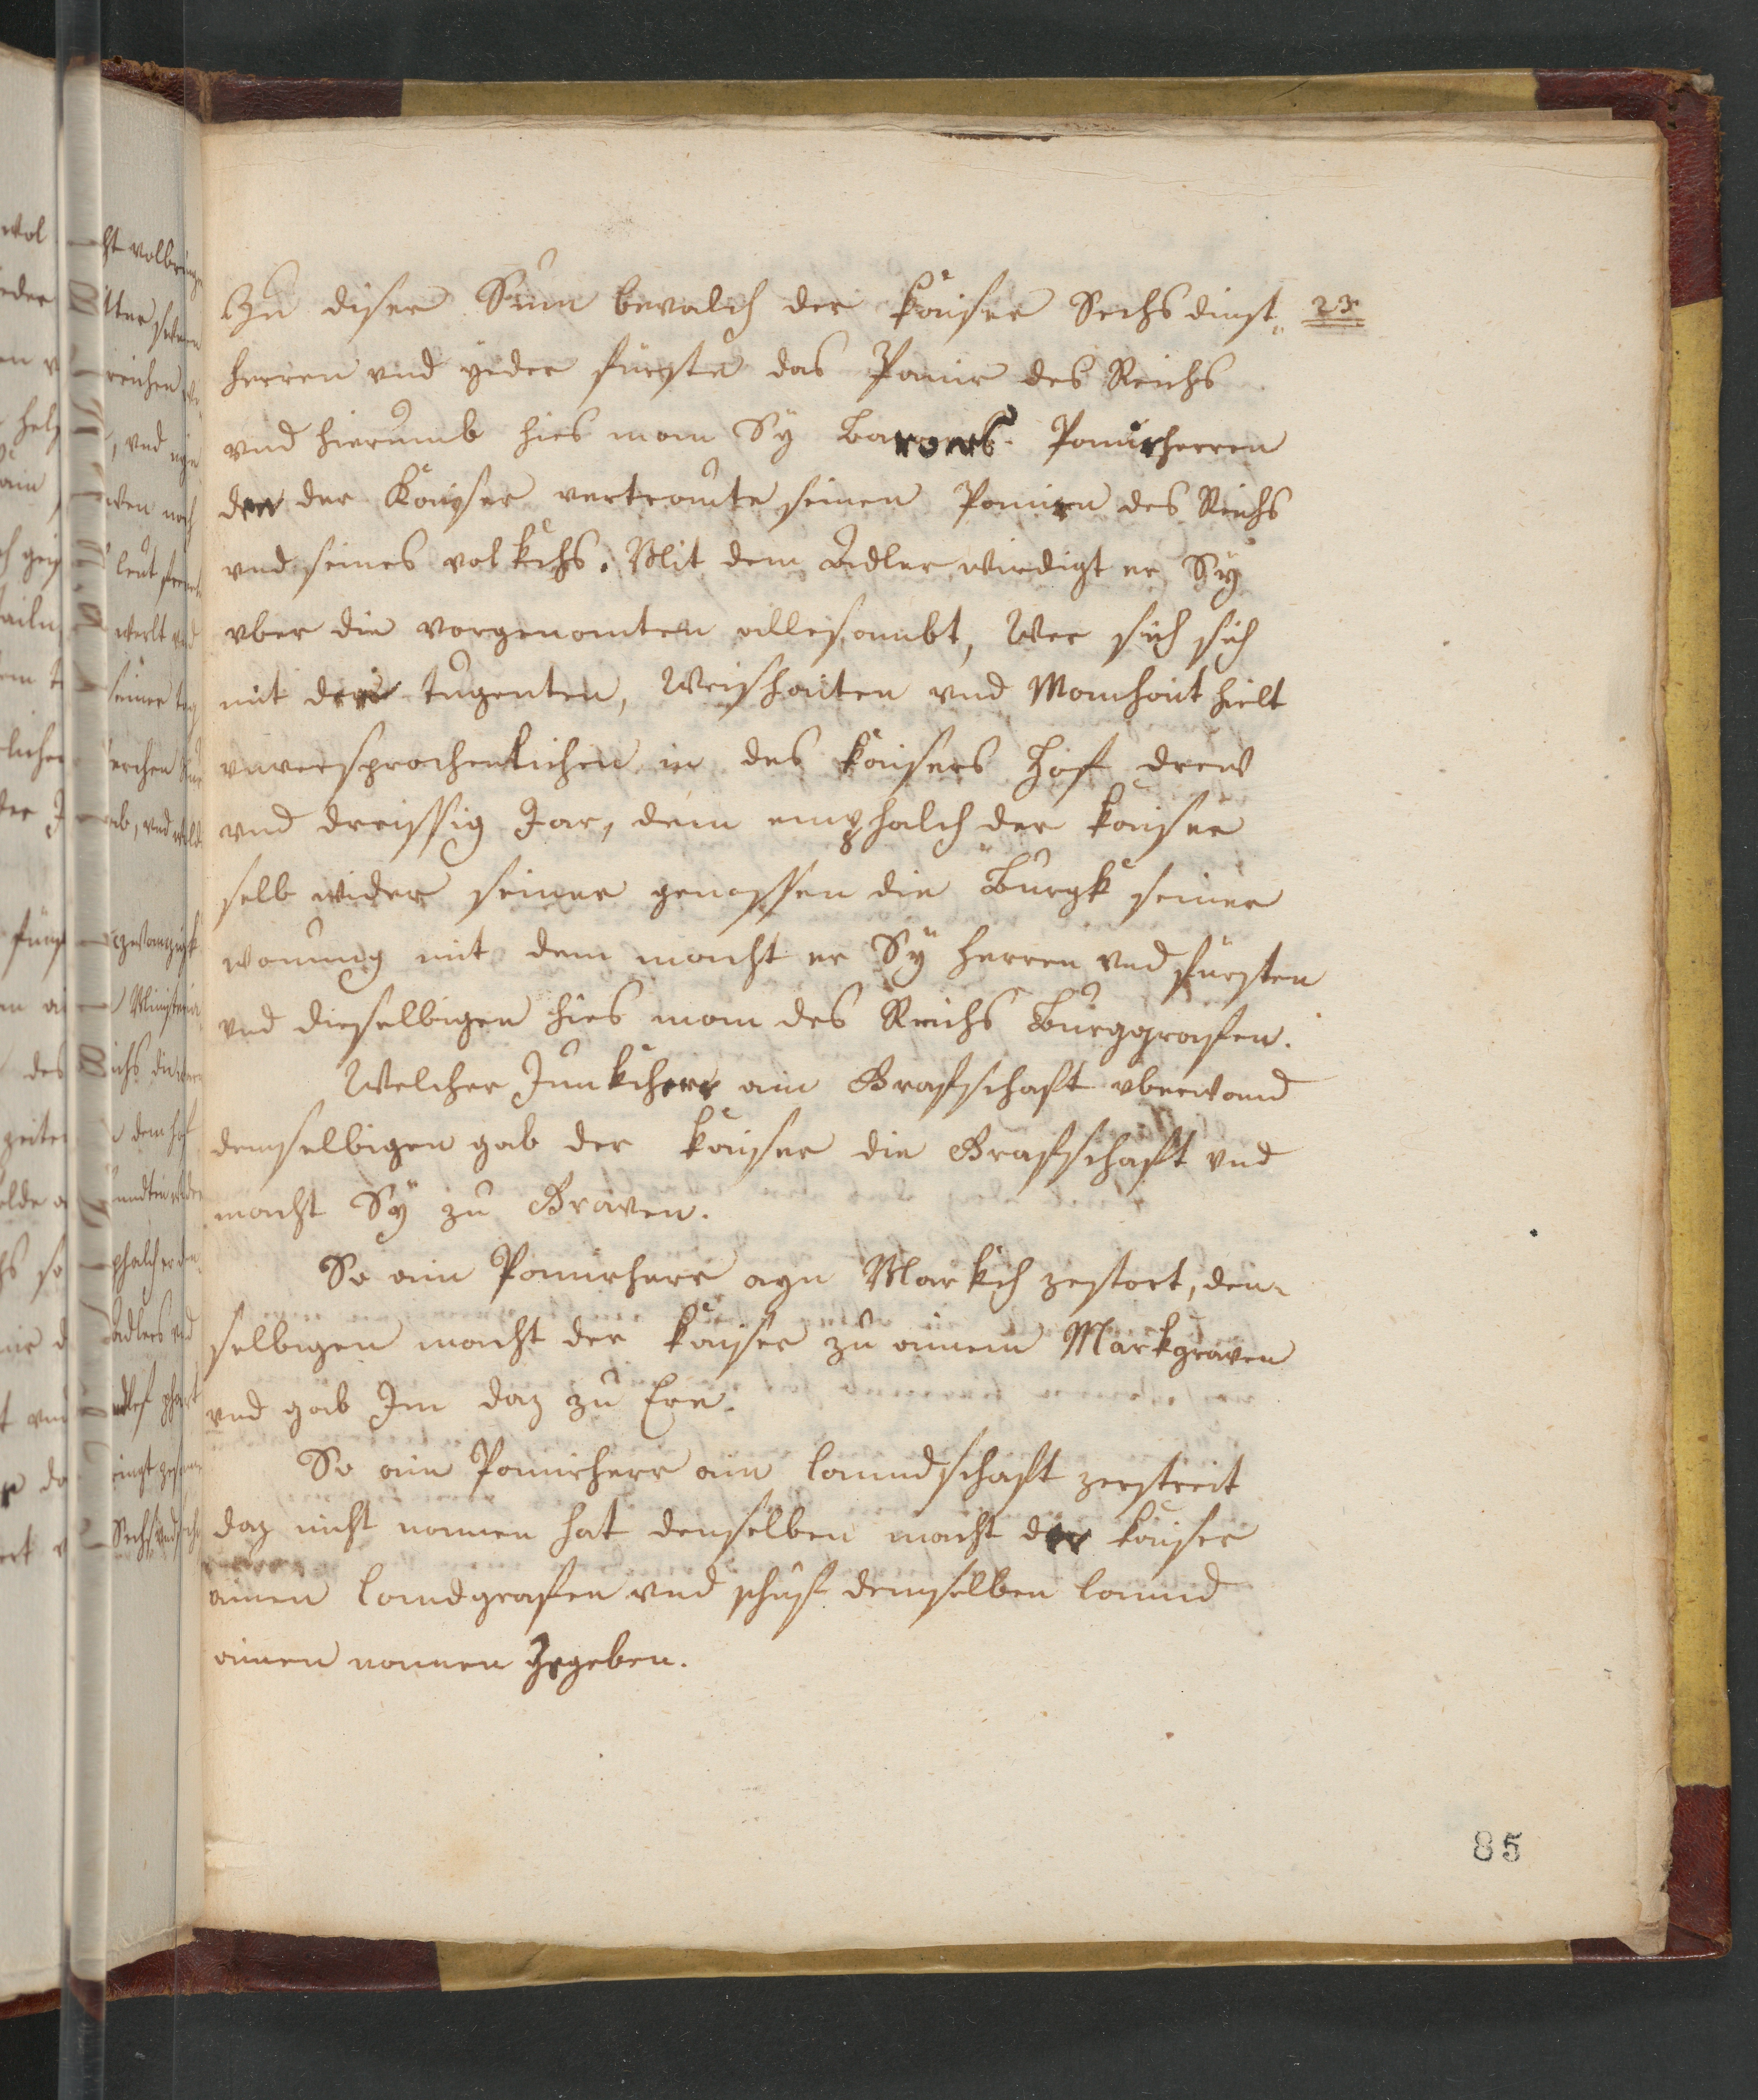 Zu diser Sum bevalch der kaiser Sechs dinst- 23
herren vnd yeder fürste das Panir des Reichs
vnd hierumb hies man Sy Barones. Panirherren
den der Kayser vertrawte seinen Panirn des Reichs
vnd seines volkchs. Mit dem Adler wirdigt er Sy
vber die vorgenanten allesambt, Wer sich sich
mit den tugenten, Weishaiten vnd Manhait hielt
vnversprochenlichen in des kaisers Hof drew
vnd dreissig Jar, dem emphalch der kaiser
selb wider seiner genossen die Burgk seiner
wonung mit dem macht er Sy herren vnd fürsten
vnd dieselbigen hies man des Reichs Burggrafen.
Welcher Junkcherr ain Grafschaft vberwand
demselbigen gab der kaiser die Grafschaft vnd
macht Sy zu Graven.
So ain Panirherr ayn Markch zestort, den-
selbigen macht der kaiser zu ainem Markgraven
vnd gab Im daz zu Ere.
So ain Panirherr ain lanndschaft zerstreit
daz nicht namen hat denselben macht der kaiser
ainen landgrafen vnd schuf demselben lannd
ainen namen Zegeben.
85